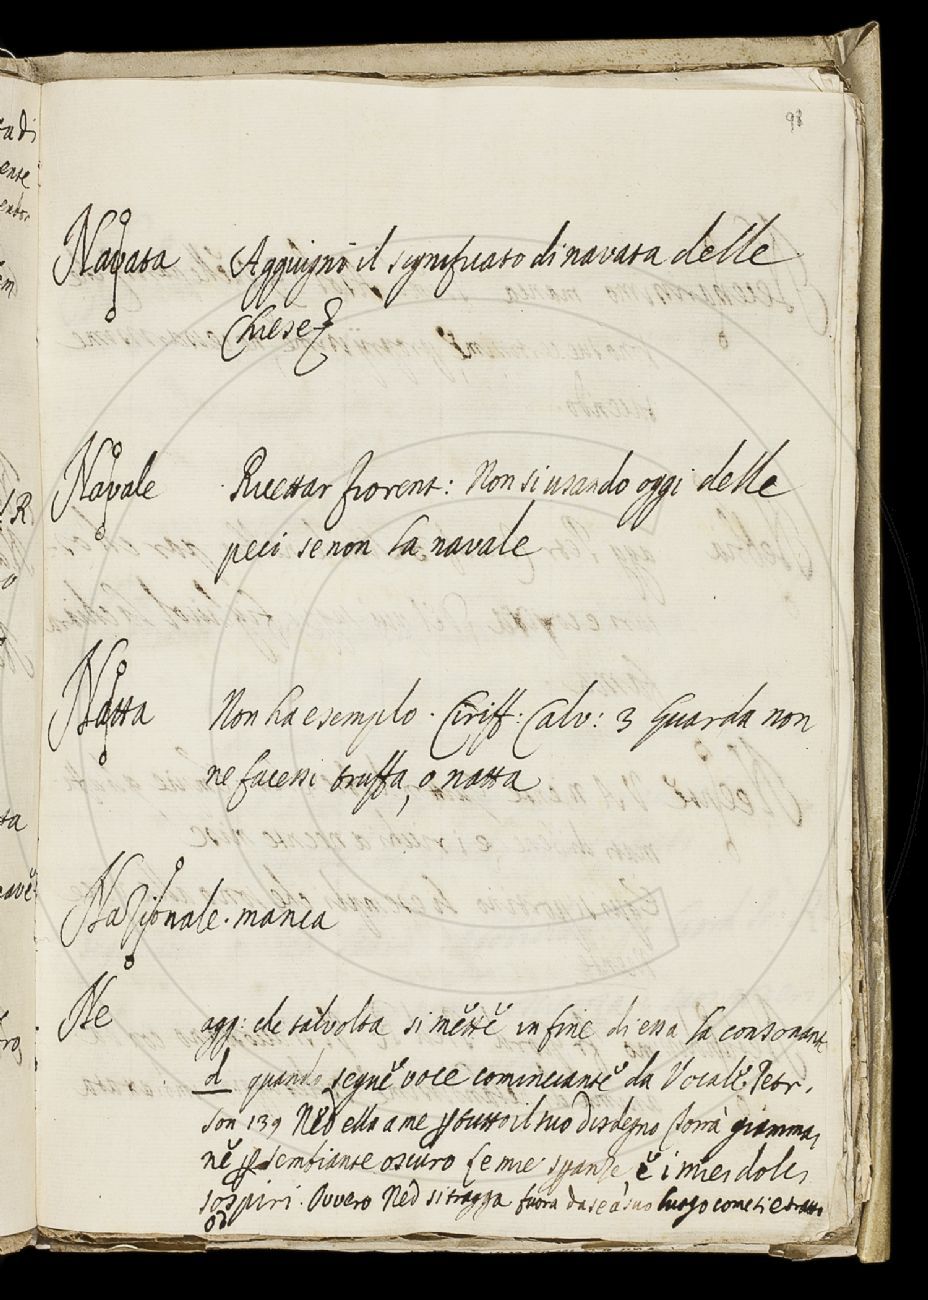 98
Navata Aggiugnẽ il significato di navata delle
Chiese
Navale Ricettar fiorent: Non si usando oggi delle
peci se non la navale
Natta Non ha esemplo. Ciriff: Calv: 3 Guarda non
ne facessi truffa, o natta
Nazionale. manca
Ne agg: che talvolta si mette in fine di essa la consonante
d quando segue voce cominciante da Vocale Petr.
son 139 Ned ella a me ꝑ tutto il suo disdegno Torrà giammai
nè ꝑ sembiante oscuro le mie speranze, e i miei dolci
sospiri. Ovvero Ned si tragga fuora da se a suo luogo come si è tratto
od